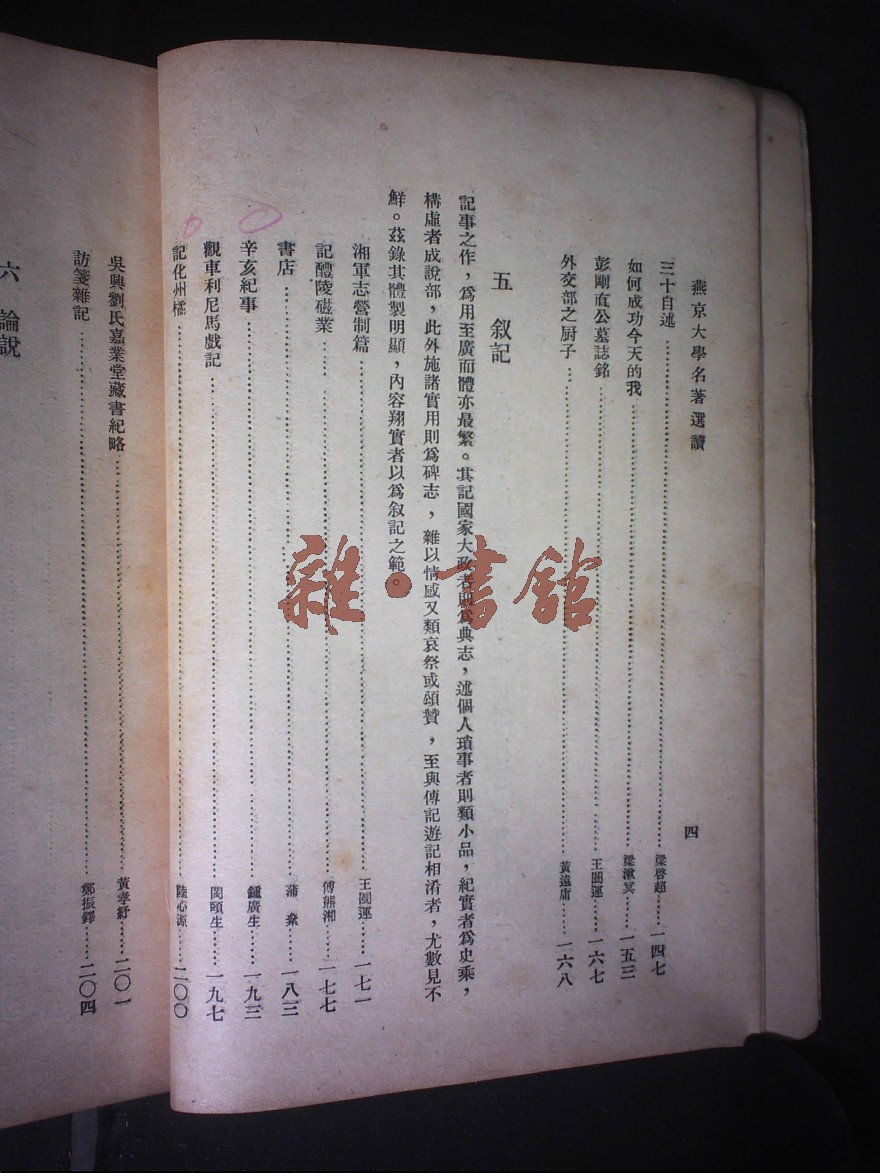 燕京大學名著選讀
四
三十自述……梁啓超……一四七
如何成功今天的我……梁漱冥……一五三
彭剛直公墓誌銘……王闓運……一六七
外交部之厨子……黃遠庸……一六八
五 叙記
記事之作，爲用至廣而體亦最繁。其記國家大政者則爲典志，述個人瑣事者則類小品，紀實者爲史乘，
構虛者成說部，此外施諸實用則爲碑志，雜以情感又類哀祭或頌贊，至與傳記遊記相淆者，尤數見不
鮮。茲錄其體製明顯，內容翔實者以爲叙記之範。
湘軍志營制篇……王闓運……一七一
記醴陵磁業……傅熊湘……一七七
書店……蒲梢……一八三
辛亥紀事……鍾廣生……一九三
觀車利尼馬戲記……闵頤生……一九七
記化州橘……陸心源……二〇〇
吳興劉氏嘉業堂藏書紀略……黃孝紓……二〇一
訪箋雜記……鄭振鐸……二〇四
六 論說
雜·書館